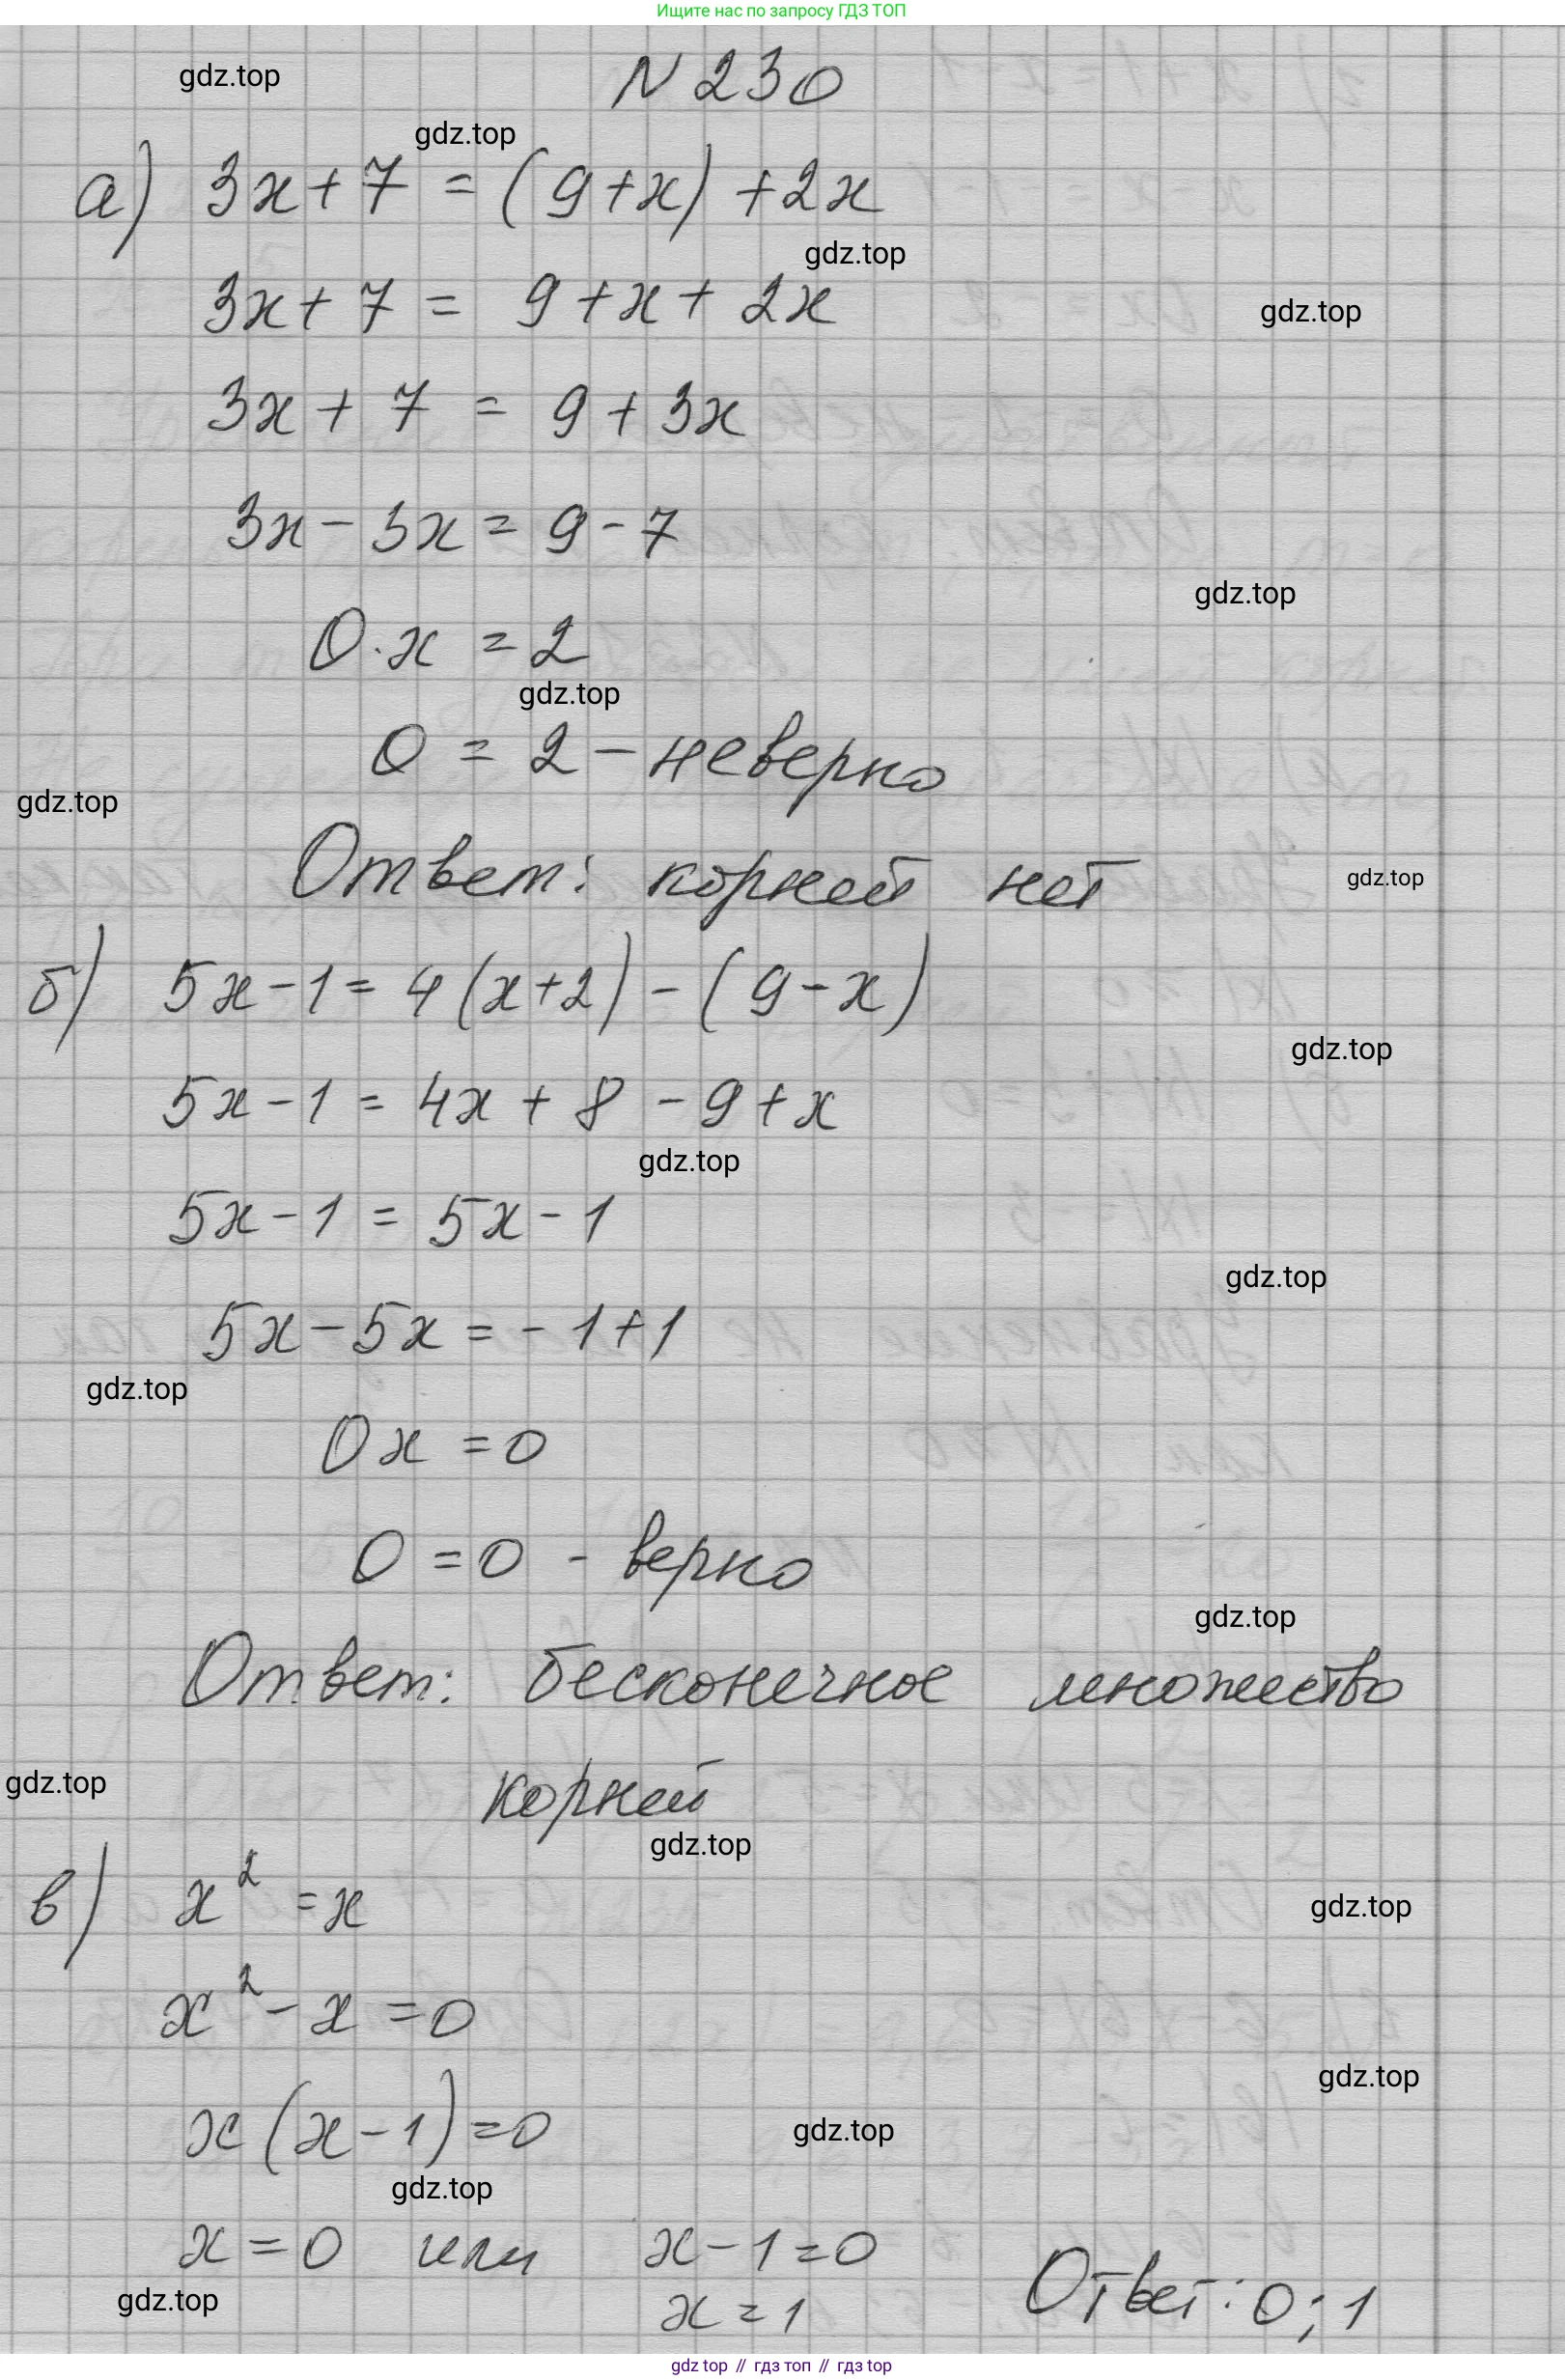 Ищите нас по запросу ГДЗ ТОП
gdz.top
N 230
gdz.top
а) 3x + 7 = (9 + x) + 2x
gdz.top
3x + 7 = 9 + x + 2x
gdz.top
3x + 7 = 9 + 3x
3x - 3x = 9 - 7
gdz.top
0 · x = 2
gdz.top
0 = 2 - неверно
gdz.top
Ответ: корней нет
gdz.top
б) 5x - 1 = 4(x + 2) - (9 - x)
gdz.top
5x - 1 = 4x + 8 - 9 + x
gdz.top
5x - 1 = 5x - 1
gdz.top
5x - 5x = - 1 + 1
gdz.top
0x = 0
0 = 0 - верно
gdz.top
Ответ: бесконечное множество
gdz.top
корней
gdz.top
в) x² = x
gdz.top
x² - x = 0
gdz.top
x(x - 1) = 0
gdz.top
gdz.top
x = 0 или x - 1 = 0
gdz.top
x = 1 Ответ: 0; 1
gdz top // гдз топ // гдз top